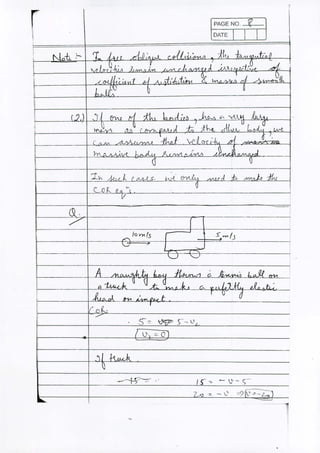 PAGE NO 8
DATE
Note :- In free oblique collisions, the tangential
velocities remain unchanged irrespective of
coefficient of restitution & masses of smooth
balls.
(2) If one of the bodies, has a very large
mass as compared to the other body, we
can assume that velocity of
massive body remains unchanged.
In such cases we only need to make the
COR eqⁿs.
Q.
10 m/s
5 m/s
A naughty boy throws a tennis ball on
a truck to make a perfectly elastic
head on impact.
COR
5 = 5 - v₂
v₂ = 0
If truck
15 = - v - 5
20 = - v ⇒ v = -20